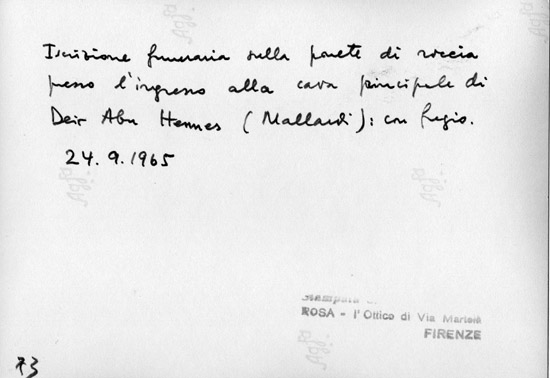 Iscrizione funeraria sulla parete di roccia
presso l'ingresso alla cava principale di
Deir Abu Hennes (Mallawi): con fregio.
24.9.1965
Stampata
ROSA - l'Ottico di Via Martelli
FIRENZE
73
Agfa
Agfa
Agfa
Agfa
Agfa